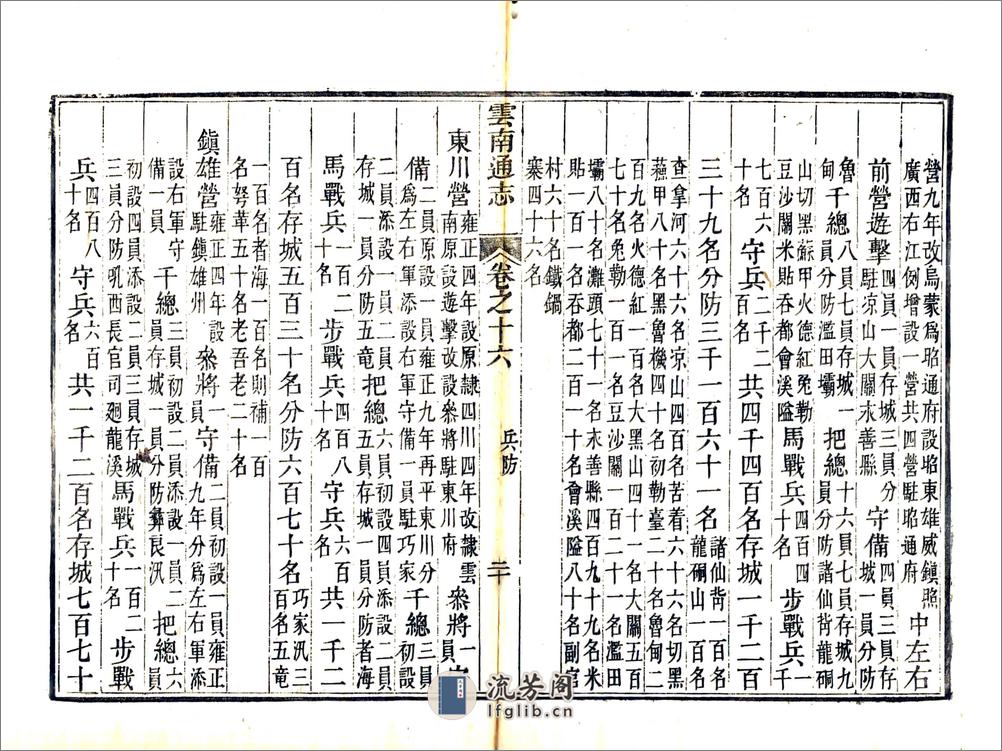 營九年改烏蒙爲昭通府設昭東雄威鎮照
廣西右江例增設一營共四營駐昭通府 中左右
前營遊擊 四員一員存城三員分
駐凉山大關永善縣 守備 四員三員存
城一員分防
魯甸 千總 八員七員存城一
員分防濫田壩 把總 十六員七員存城九
員分防諸仙背龍硐
山切黑蘇甲火德紅兔勒
豆沙關米貼吞都會溪隘 馬戰兵 四百四
十名 步戰兵 一千
七百六
十名 守兵 二千二
百名 共四千四百名存城一千二百
三十九名分防三千一百六十一名 諸仙背一百名
龍硐山一百名
查拿河六十六名凉山四百名苦着六十六名切黑
蘓甲八十名黑魯機四十名初勒臺二十名魯甸二
百九名火德紅一百名大黑山四十一名大關五百
七十名兔勒一百名豆沙關一百二十一名濫田
壩八十名灘頭七十一名永善縣四百九十九名米
貼一百一名吞都二百一十名會溪隘八十名副官
村六十名鐵鍋
寨四十六名
雲南通志 卷之十六 兵防 二十
東川營 雍正四年設原隷四川四年改隷雲
南原設遊擊改設參將駐東川府 參將 一
員 守
備 二員原設一員雍正九年再平東川分
爲左右軍添設右軍守備一員駐巧家 千總 初設三員
二員添設
二員添設一員分防者海
存城一員分防五竜 把總 六員初設四員添設二
員五員存城一員分防者海
馬戰兵 一百二
十名 步戰兵 四百八
十名 守兵 六百
名 共一千二
百名存城五百三十名分防六百七十名 巧家汛三
百名五竜
一百名者海一百名則補一百
名弩華五十名老吾老二十名
鎮雄營 雍正四年設
駐鎮雄州 參將 一
員 守備 二員初設一員雍正
九年分爲左右軍添
設右軍守
備一員 千總 三員初設二員添設一員二
員存城一員分防彝良汛 把總 六員
初設四員添設二員三員存城
三員分防吼西長官司廻龍溪 馬戰兵 一百二
十名 步戰
兵 四百八
十名 守兵 六百
名 共一千二百名存城七百七十
流芳阁
lfglib.cn